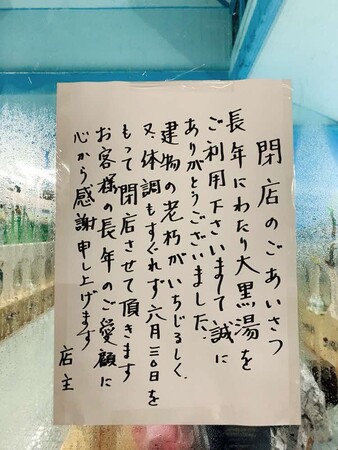 閉店のごあいさつ
長年にわたり大黒湯を
ご利用下さいまして誠に
ありがとうございました。
建物の老朽がいちじるしく、
又、体調もすぐれず六月三〇日を
もって閉店させて頂きます
お客様の長年のご愛顧に
心から感謝申し上げます
店主